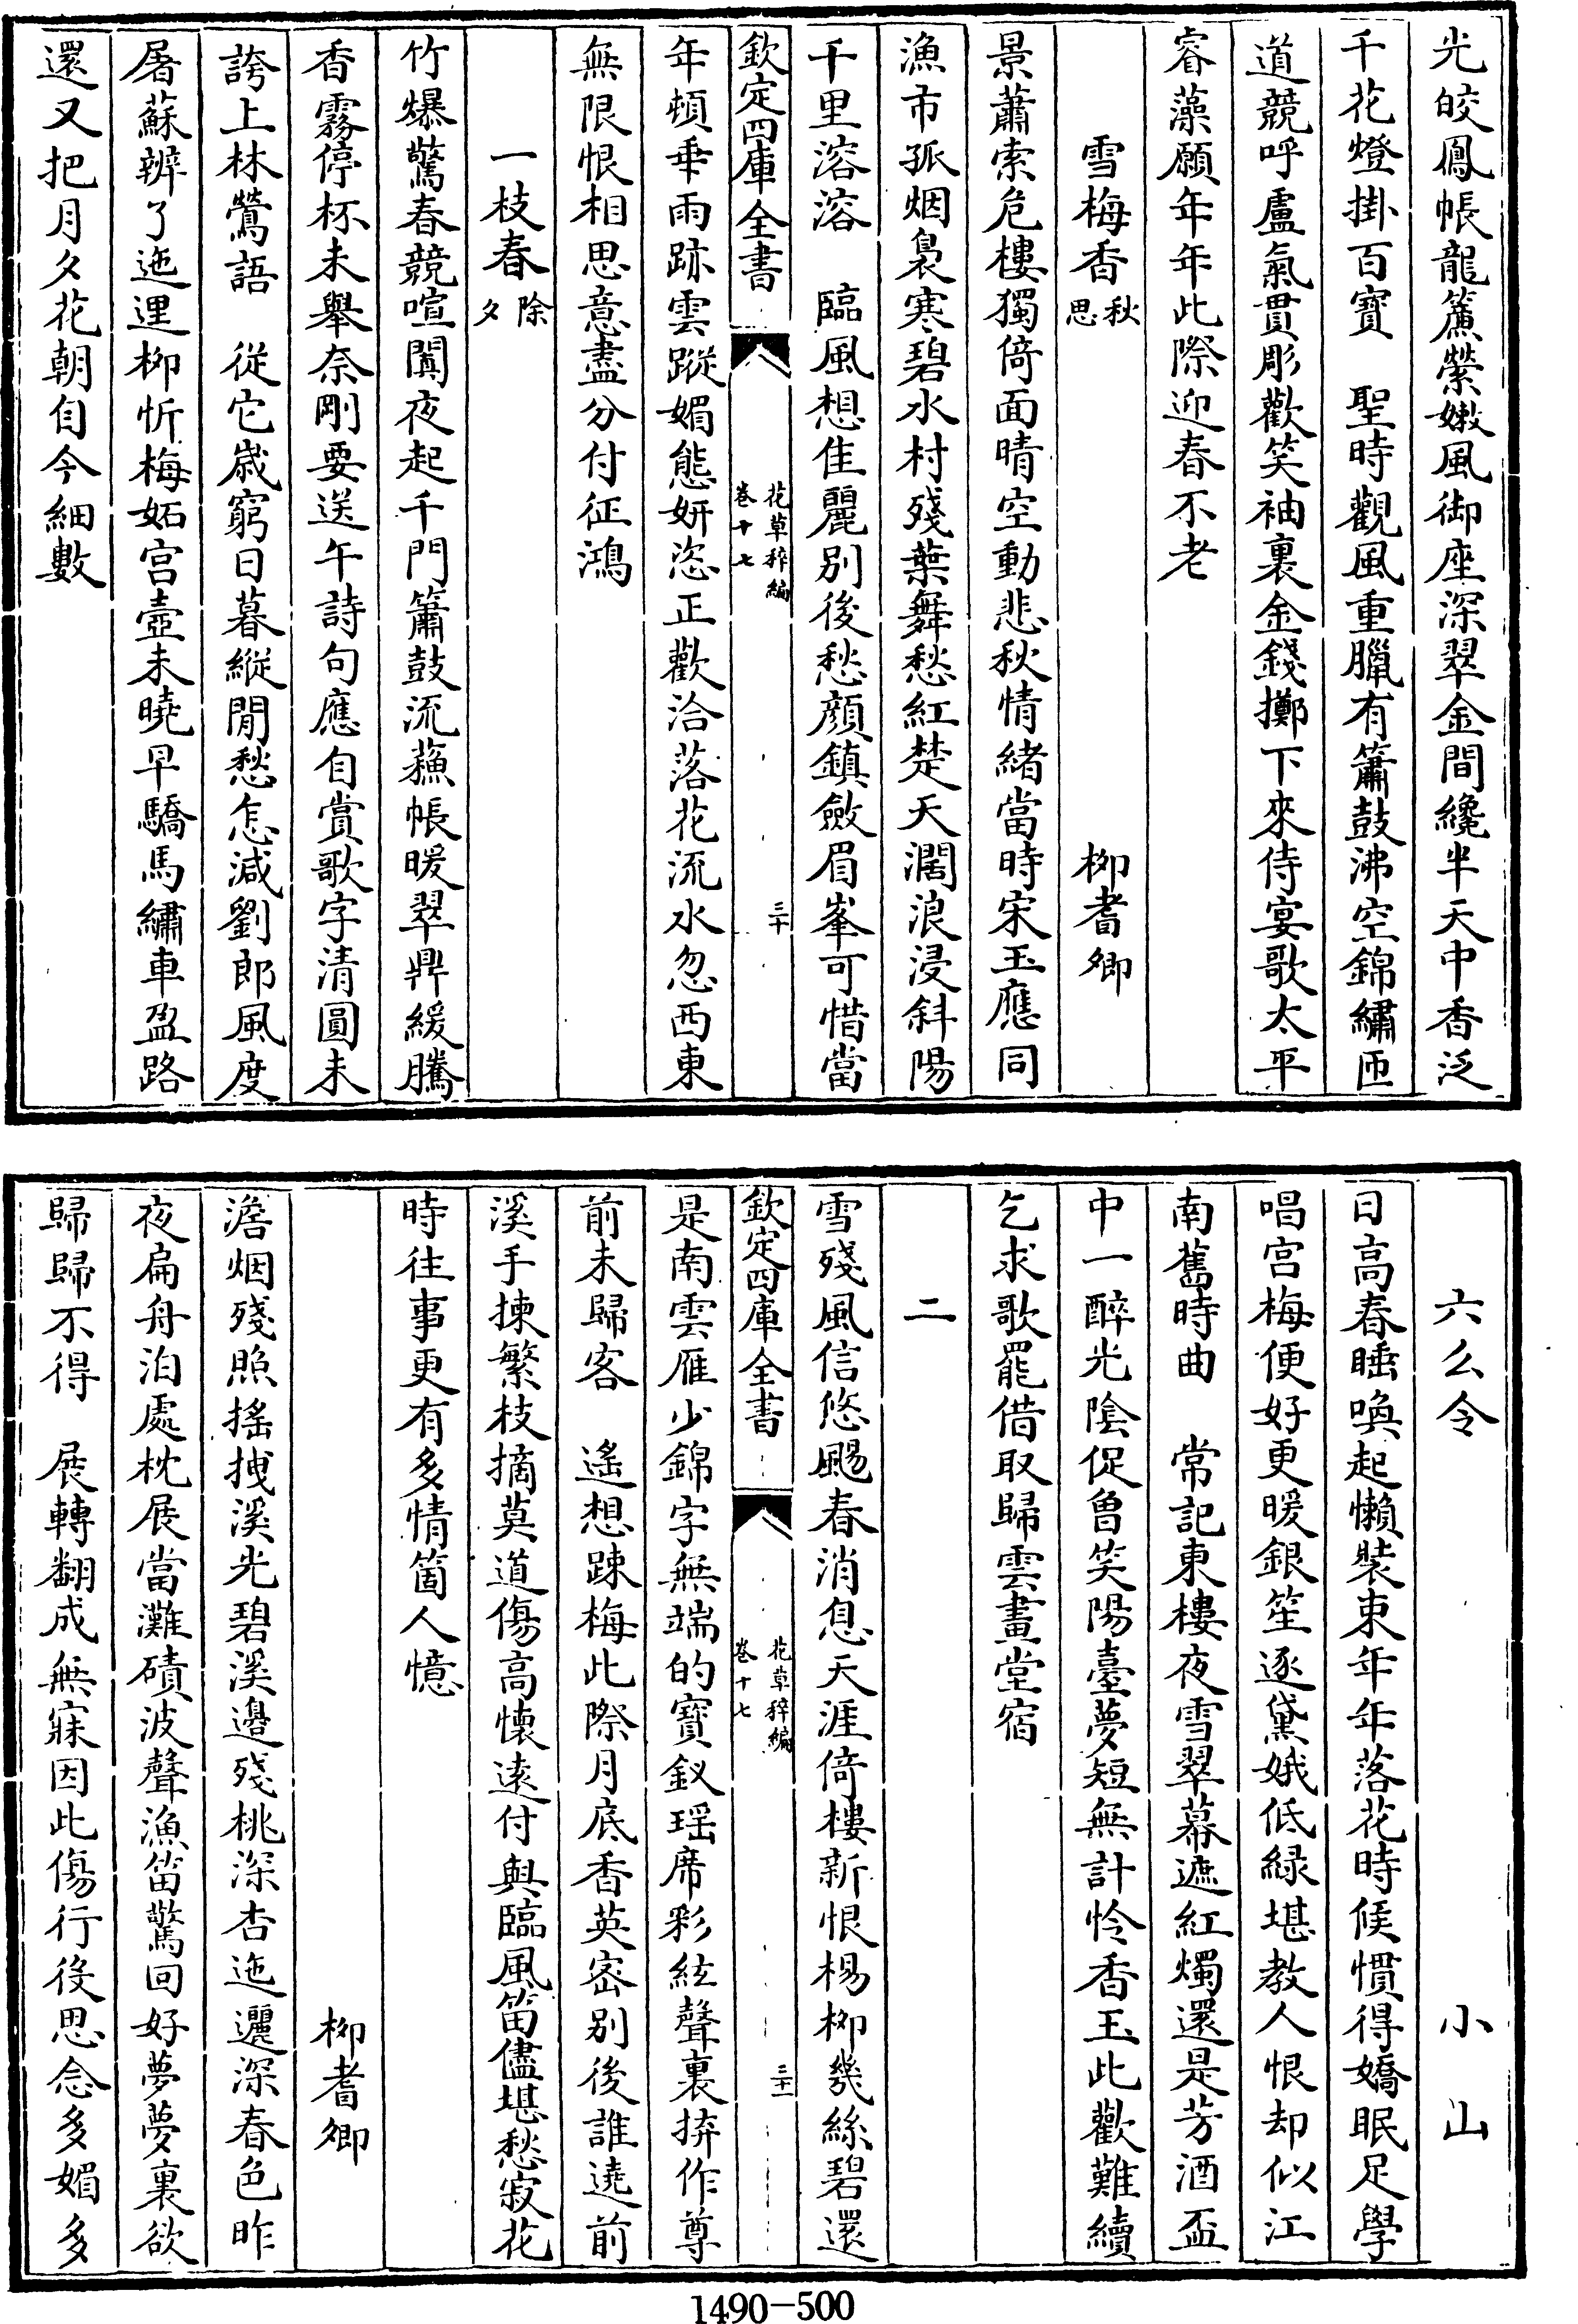 光皎鳳帳龍簾縈嫩風御座深翠金間纔半天中香泛
千花燈掛百寶　聖時觀風重臘有簫鼓沸空錦繡匝
道競呼盧氣貫彫歡笑袖裏金錢擲下來侍宴歌太平
睿藻願年年此際迎春不老
雪梅香秋思　柳耆卿
景蕭索危樓獨倚面晴空動悲秋情緒當時宋玉應同
漁市孤烟裊寒碧水村殘葉舞愁紅楚天濶浪浸斜陽
千里溶溶　臨風想佳麗别後愁顔鎮斂眉峯可惜當
欽定四庫全書　花草稡編卷十七　三十
年頓乖雨跡雲蹤媚態妍恣正歡洽落花流水忽西東
無限恨相思意盡分付征鴻
一枝春除夕
竹爆驚春競喧闐夜起千門簫鼓流蘇帳暖翠鼎緩騰
香霧停杯未舉奈剛要送年詩句應自賞歌字清圓未
誇上林鶯語　從它歲窮日暮縱閒愁怎減劉郎風度
屠蘇辨了迤邐柳忻梅妬宫壺未曉早驕馬繡車盈路
還又把月夕花朝自今細數
六么令　小山
日高春睡喚起懶裝束年年落花時候慣得嬌眠足學
唱宫梅便好更暖銀笙逐黛娥低緑堪教人恨却似江
南舊時曲　常記東樓夜雪翠幕遮紅燭還是芳酒盃
中一醉光陰促曾笑陽臺夢短無計怜香玉此歡難續
乞求歌罷借取歸雲畫堂宿
二
雪殘風信悠颺春消息天涯倚樓新恨楊柳幾絲碧還
欽定四庫全書　花草稡編卷十七　三十一
是南雲雁少錦字無端的寶釵瑶席彩絃聲裏拚作尊
前未歸客　遙想踈梅此際月底香英密别後誰遶前
溪手揀繁枝摘莫道傷高懐逺付與臨風笛儘堪愁寂花
時往事更有多情箇人憶
柳耆卿
澹烟殘照搖拽溪光碧溪邊殘桃深杏迤邐深春色昨
夜扁舟泊處枕展當灘磧波聲漁笛驚回好夢夢裏欲
歸歸不得　展轉翻成無寐因此傷行役思念多媚多
1490-500